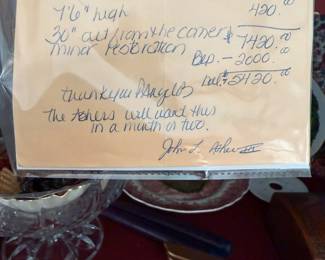 7'6" high 420.00
30" out from the corner $7420.00
minor restoration Dep. - 2000.00
Bal. $5420.00
thank you
The Ashers will want this
in a month or two.
John L. Asher III